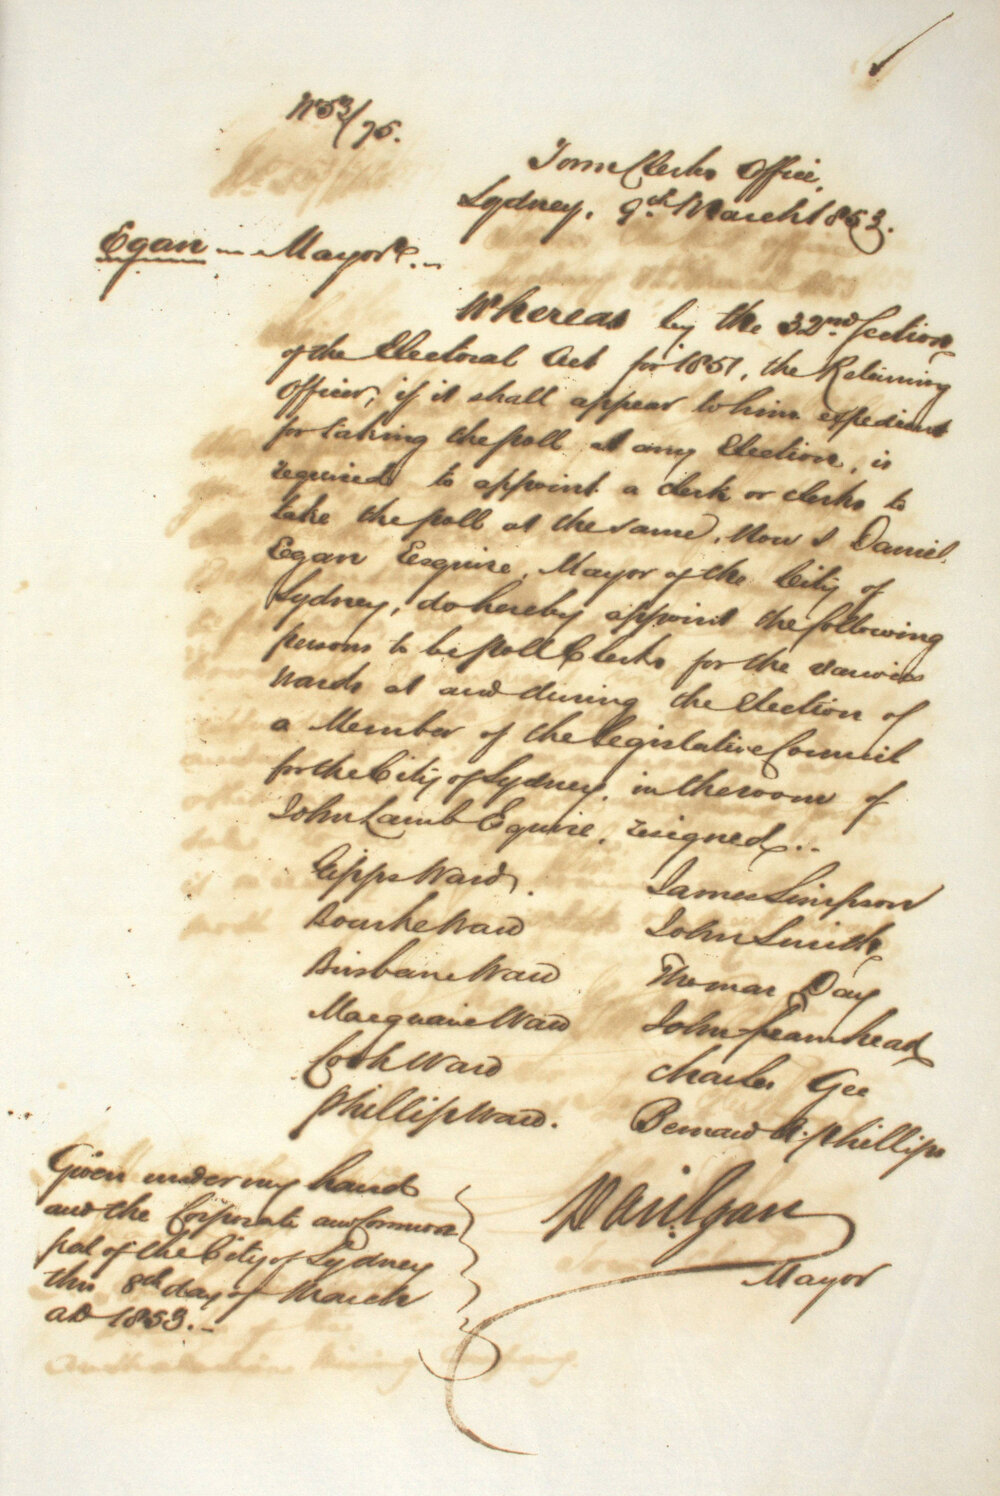 No 53/75.
Town Clerks Office,
Sydney, 9th March 1853.
Egan — Mayor &c. —
Whereas by the 32nd Section
of the Electoral Act for 1851, the Returning
Officer, if it shall appear to him expedient
for taking the poll at any Election, is
required to appoint a clerk or clerks to
take the poll at the same, Now I Daniel
Egan Esquire, Mayor of the City of
Sydney, do hereby appoint the following
persons to be poll Clerks for the various
Wards at and during the Election of
a Member of the Legislative Council
for the City of Sydney, in the room of
John Lamb Esquire, resigned..
Gipps Ward. James Simpson
Bourke Ward John Smith
Brisbane Ward Thomas Day
Macquarie Ward John
Cook Ward Charles Gee
Phillip Ward. Bernard A. Phillips
Given under my hand
and the Corporate and Common
seal of the City of Sydney
this 8th day of March
AD 1853. —
Danl. Egan
Mayor